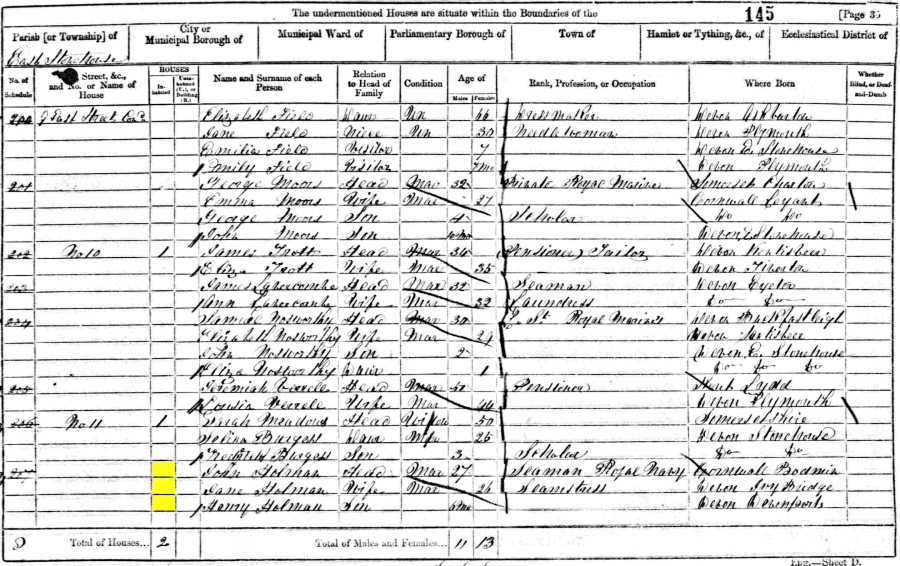 The undermentioned Houses are situate within the Boundaries of the 145 [Page 35
Parish [or Township] of City or Municipal Borough of Municipal Ward of Parliamentary Borough of Town of Hamlet or Tything, &c., of Ecclesiastical District of
East Stonehouse
No. of Schedule Street, &c., and No. or Name of House HOUSES Inhabited Uninhabited (U.), or Building (B.) Name and Surname of each Person Relation to Head of Family Condition Age of Males Females Rank, Profession, or Occupation Where Born Whether Blind, or Deaf-and-Dumb
200 9 East Street Elizabeth Field Un 66 Dressmaker Devon Ashburton
Jane Field Niece Un 30 Needlewoman Devon Plymouth
Emilia Field Visitor 7 Devon E. Stonehouse
Emily Field Visitor 7mo Devon Plymouth
201 George Moors Head Mar 32 Private Royal Marines Somerset Charlton
Emma Moors Wife Mar 27 Cornwall
George Moors Son 4 Scholar Do Do
John Moors Son Devon E Stonehouse
202 No 10 1 James Trott Head Mar 34 (Pensioner) Tailor Devon Kentisbeer
Eliza Trott Wife Mar 35 Devon Tiverton
203 James Head Mar 32 Seaman Devon
Ann Wife Mar 32 Laundress Do Do
204 Samuel Nosworthy Head Mar 30 Royal Marines Devon Buckfastleigh
Elizabeth Nosworthy Wife Mar 29 Devon
John Nosworthy Son 2 Devon E. Stonehouse
Eliza Nosworthy 1 Do Do
205 Jeremiah Head Mar 51 Pensioner Kent Lydd
Louisa Wife Mar 44 Devon Plymouth
206 No 11 1 Sarah Meadows Head Widow 50 Somersetshire
Selina Burgess 25 Devon Stonehouse
Frederick Burgess Son 3 Scholar Do Do
207 John Holman Head Mar 27 Seaman Royal Navy Cornwall Bodmin
Jane Holman Wife Mar 26 Seamstress Devon Ivy Bridge
Henry Holman Son Devon Devonport
Total of Houses... 2 Total of Males and Females... 11 13
Eng.—Sheet D.